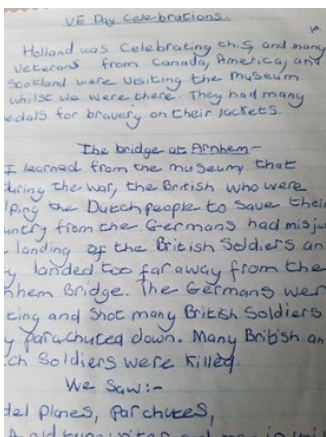 VE Day Celebrations.
Holland was Celebrating this, and many
Veterans from Canada, America, and
Scotland were visiting the museum
whilst we were there. They had many
edals for bravery on their Jackets.
The bridge at Arnhem-
I learned from the museum that
uring the war, the British who were
lping the Dutch people to save their
untry from the Germans had misju
landing of the British Soldiers an
y landed too far away from the
nhem Bridge. The Germans wer
ting and shot many British Soldiers
y parachuted down. Many British an
ch Soldiers were killed.
We Saw:-
del planes, parchutes,